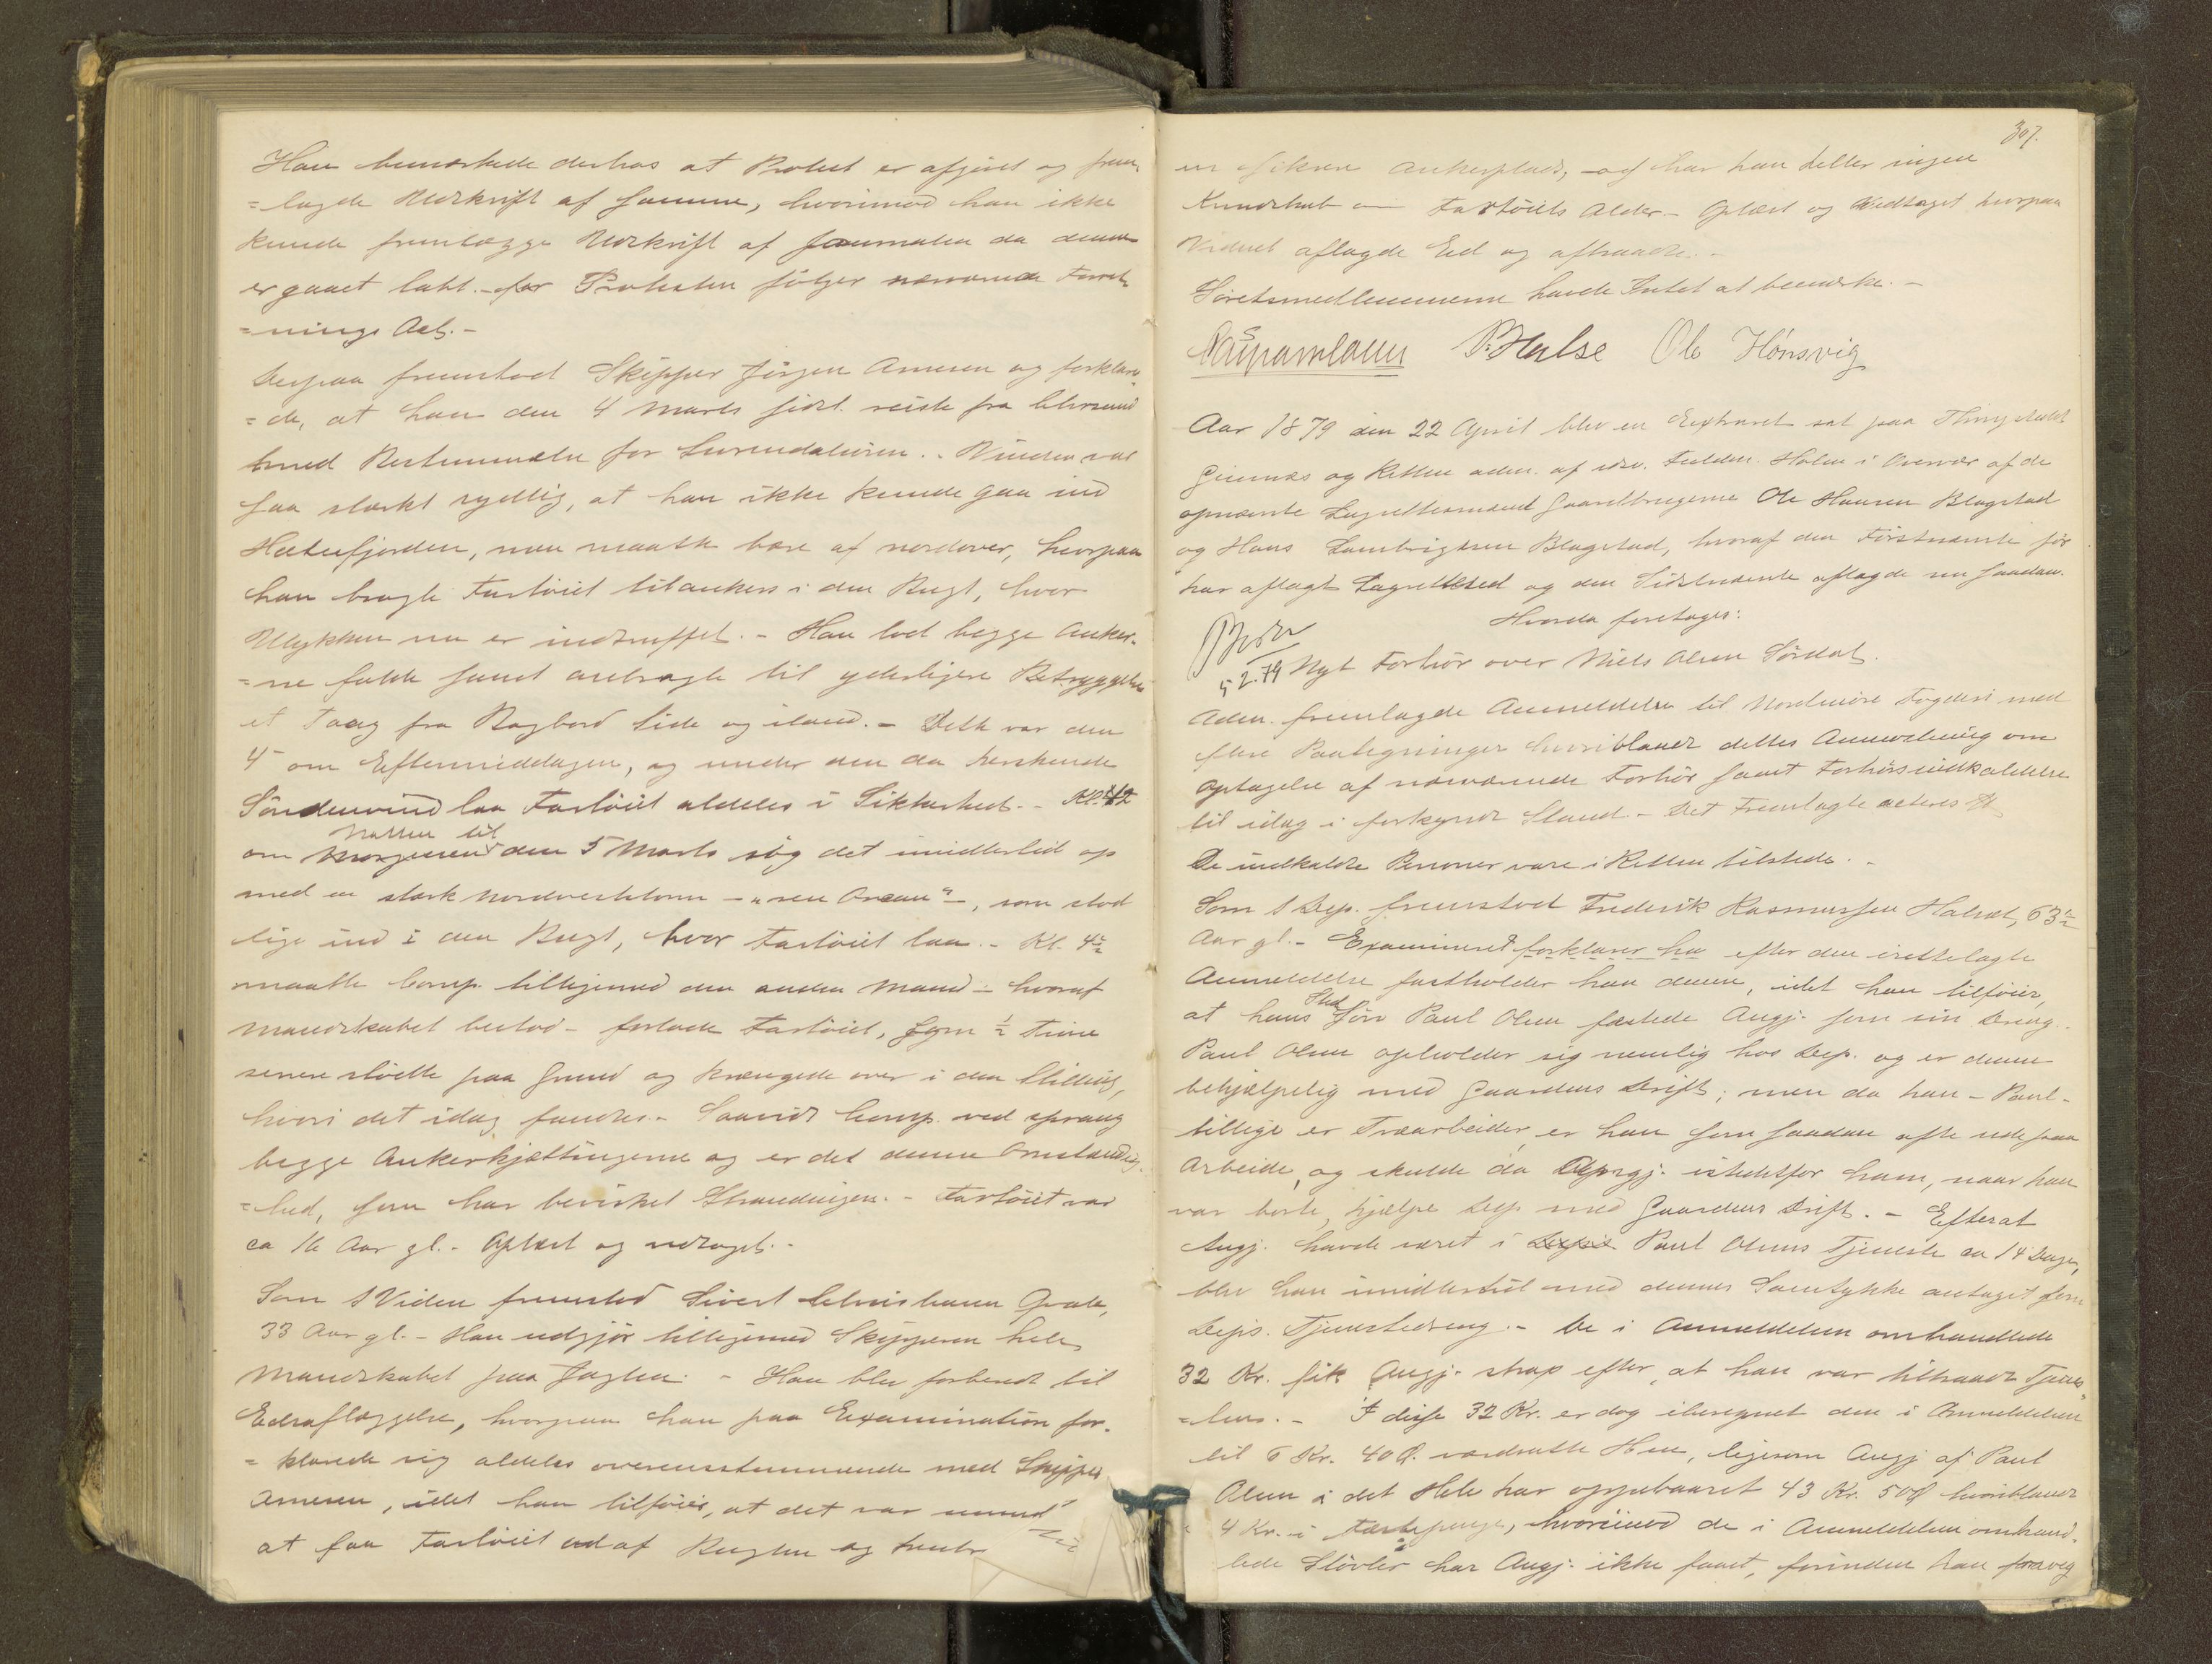 Han bemærkede derhos at Protest er afgivet og frem
=lagde Udskrift af samme, hvorimod han ikke
kunde fremlægge Udskrift af Journalen da denne
er gaaet tabt. - før Protesten følger nærværende Forret
=nings Act. -
Derpaa fremstod Skipper Jørgen Arnesen og forklare
=de, at han den 4 Marts sidstl. reiste fra Chrsund
med Bestemmelse for Surendalsøren. - Vinden var
saa stærkt sydlig, at han ikke kunde gaa ind
Halsefjorden, men maatte bære af nordover, hvorpaa
han bragte Fartøiet tilankers i den Bugt, hvor
Ulykken nu er indtruffet. - Han lod begge Anker-
=ne falde samt anbragte til yderligere Betryggelse
et Taug fra Bagbord Side og iland. - Dette var den
4 om Eftermiddagen, og under den da herskende
Søndenvind laa Fartøiet aldeles i Sikkerhed. - Kl. 12
Natten til
om Morgenen den 5 Marts røg det imidlertid op
med en stærk Nordveststorm - "ren Orcan" -, som stod
lige ind i den Bugt, hvor Fartøiet laa. - Kl. 4½
maatte Comp. tilligemed den anden Mand - hvoraf
Mandskabet bestod - forlade Fartøiet, som ½ Time
senere stødte paa Grund og krængede over i den Stilling,
hvori det idag fandtes. - Saavidt Comp. ved sprang
begge Ankerkjættingerne og er det denne Omstændig
=hed, som har bevirket Strandingen. - Fartøiet var
ca 16 Aar gl. - Oplæst og vedtaget. -
Som 1 Vidne fremstod Sivert Christiansen
33 Aar gl. - Han udgjør tilligemed Skipperen hele
Mandskabet paa Jagten. - Han blev forberedt til
Edsaflæggelse, hvorpaa han paa Examination for-
=klarede sig aldeles overensstemmende med Skipper
Arnesen, idet han tilføier, at det var umu
at faa Fartøiet ud af Bugten og
307.
en sikrere Ankerplads, - og har han heller ingen
Kundskab om Fartøiets Alder. - Oplæst og Vedtaget hvorpaa
Vidnet aflagde Ed og aftraadte. -
Søretsmedlemmerne havde Intet at bemærke. -
P. Halse Ole Hönsvig
Aar 1879 den 22 April blev en Extraret sat paa Thingstedet
Gimnæs og Retten adm. af edsv. Fuldm. Holm i Overvær af de
opnævnte Lagrettesmænd Gaardbrugerne Ole Hansen Blagstad
og Hans Lambrigtsen Blagstad, hvoraf den Førstnævnte før
har aflagt Lagrettesed og den Sidstnævnte aflagde nu saadan.
Hvorda foretages:
5 2.79 Nyt Forhør over Niels Olsen Sørdal.
Adm. fremlagde Anmeldelse til Nordmøre Fogderi med
flere Paategninger hvoriblandt dettes Anmodning om
Optagelse af nærværende Forhør samt Forhørsindkaldelse
til idag i forkyndt Stand. - Det Fremlagte acteres
De indkaldte Personer vare i Retten tilstede. -
Som 1 Dep. fremstod Frederik Rasmussen Halset, 63½
Aar gl. - Examineret forklarer ha efter den irettelagte
Anmeldelse fastholder han denne, idet han tilføier,
Sted
at hans Søn Paul Olsen fæstede Angj. som sin Dreng. -
Paul Olsen opholder sig nemlig hos Dep. og er denne
behjælpelig med Gaardens Drift; men da han - Paul -
tillige er Træarbeider, er han som saadan ofte ude paa
Arbeide, og skulde da Angj. istedetfor ham, naar han
var borte, hjælpe Dep. med Gaardens Drift. - Efterat
Angj. havde været i Paul Olsens Tjeneste ca 14 Dage,
blev han imidlertid med dennes Samtykke antaget som
Deps. Tjenestedreng. - De i Anmeldelsen omhandlede
32 Kr. fik Angj. strax efter, at han var tiltraadt Tjenes
=ten. - I disse 32 Kr. er dog iberegnet den i Anmeldelsen
til 6 Kr. 40 Ø. værdsatte Hue, ligesom Angj af Paul
Olsen i det Hele har oppebaaret 43 Kr. 50 Ø hvoriblandt
4 Kr. i Fæstepenge, hvorimod de i Anmeldelsen omhand-
lede Støvler har Angj. ikke faaet, forinden han fraveg